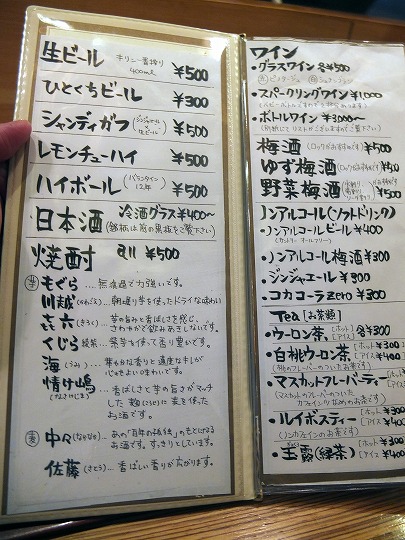 生ビール キリン一番搾り 400ml ¥500
ひとくちビール ¥300
シャンディガフ (ジンジャーエール+生ビール) ¥500
レモンチューハイ ¥500
ハイボール (バランタイン12年) ¥500
日本酒 冷酒グラス¥400~
(銘柄は前の黒板をご覧下さい)
焼酎 各¥500
芋 もぐら…無濾過で力強いです。
川越(かわごえ)…朝堀り芋を使ったドライな味わい
㐂六(きろく)…芋の旨みと香ばしさを感じ、
さわやかで飲みあきしないです。
くじら 綾紫…紫芋を使って香り豊かです。
海(うみ)…華やかな香りと適度なキレが
心地よい味わいです。
情け嶋(なさけじま)…香ばしさと芋の旨さがマッチ
した麹(こうじ)に麦を使った
お酒です。
麦 中々(なかなか)…あの「百年の孤独」のもとになる
お酒です。すっきりしています。
佐藤(さとう)…香ばしい香りが広がります。
ワイン
・グラスワイン 各¥500
・スパークリングワイン ¥1000
・ボトルワイン ¥3000~
(別紙にてリストがございますのでご覧下さい)
梅酒 (ロックがおすすめです) ¥500
ゆず梅酒 (ロックがおすすめです) ¥500
野菜梅酒 ¥500
ノンアルコール(ソフトドリンク)
・ノンアルコールビール ¥400
(サントリー オールフリー)
・ノンアルコール梅酒 ¥300
・ジンジャエール ¥300
・コカコーラzero ¥300
Tea [お茶類]
・ウーロン茶 [ホット アイス] 各¥300
・白桃ウーロン茶 [ホット ¥300 アイス ¥400
(桃のフレーバーのついたお茶です)
・マスカットフレーバーティー
(マスカットのフレーバーのついた
カフェインの少なめのお茶です)
・ルイボスティー [ホット ¥300 アイス ¥400
(ノンカフェインのお茶です)
・玉露(緑茶) [ホット ¥300 アイス ¥400